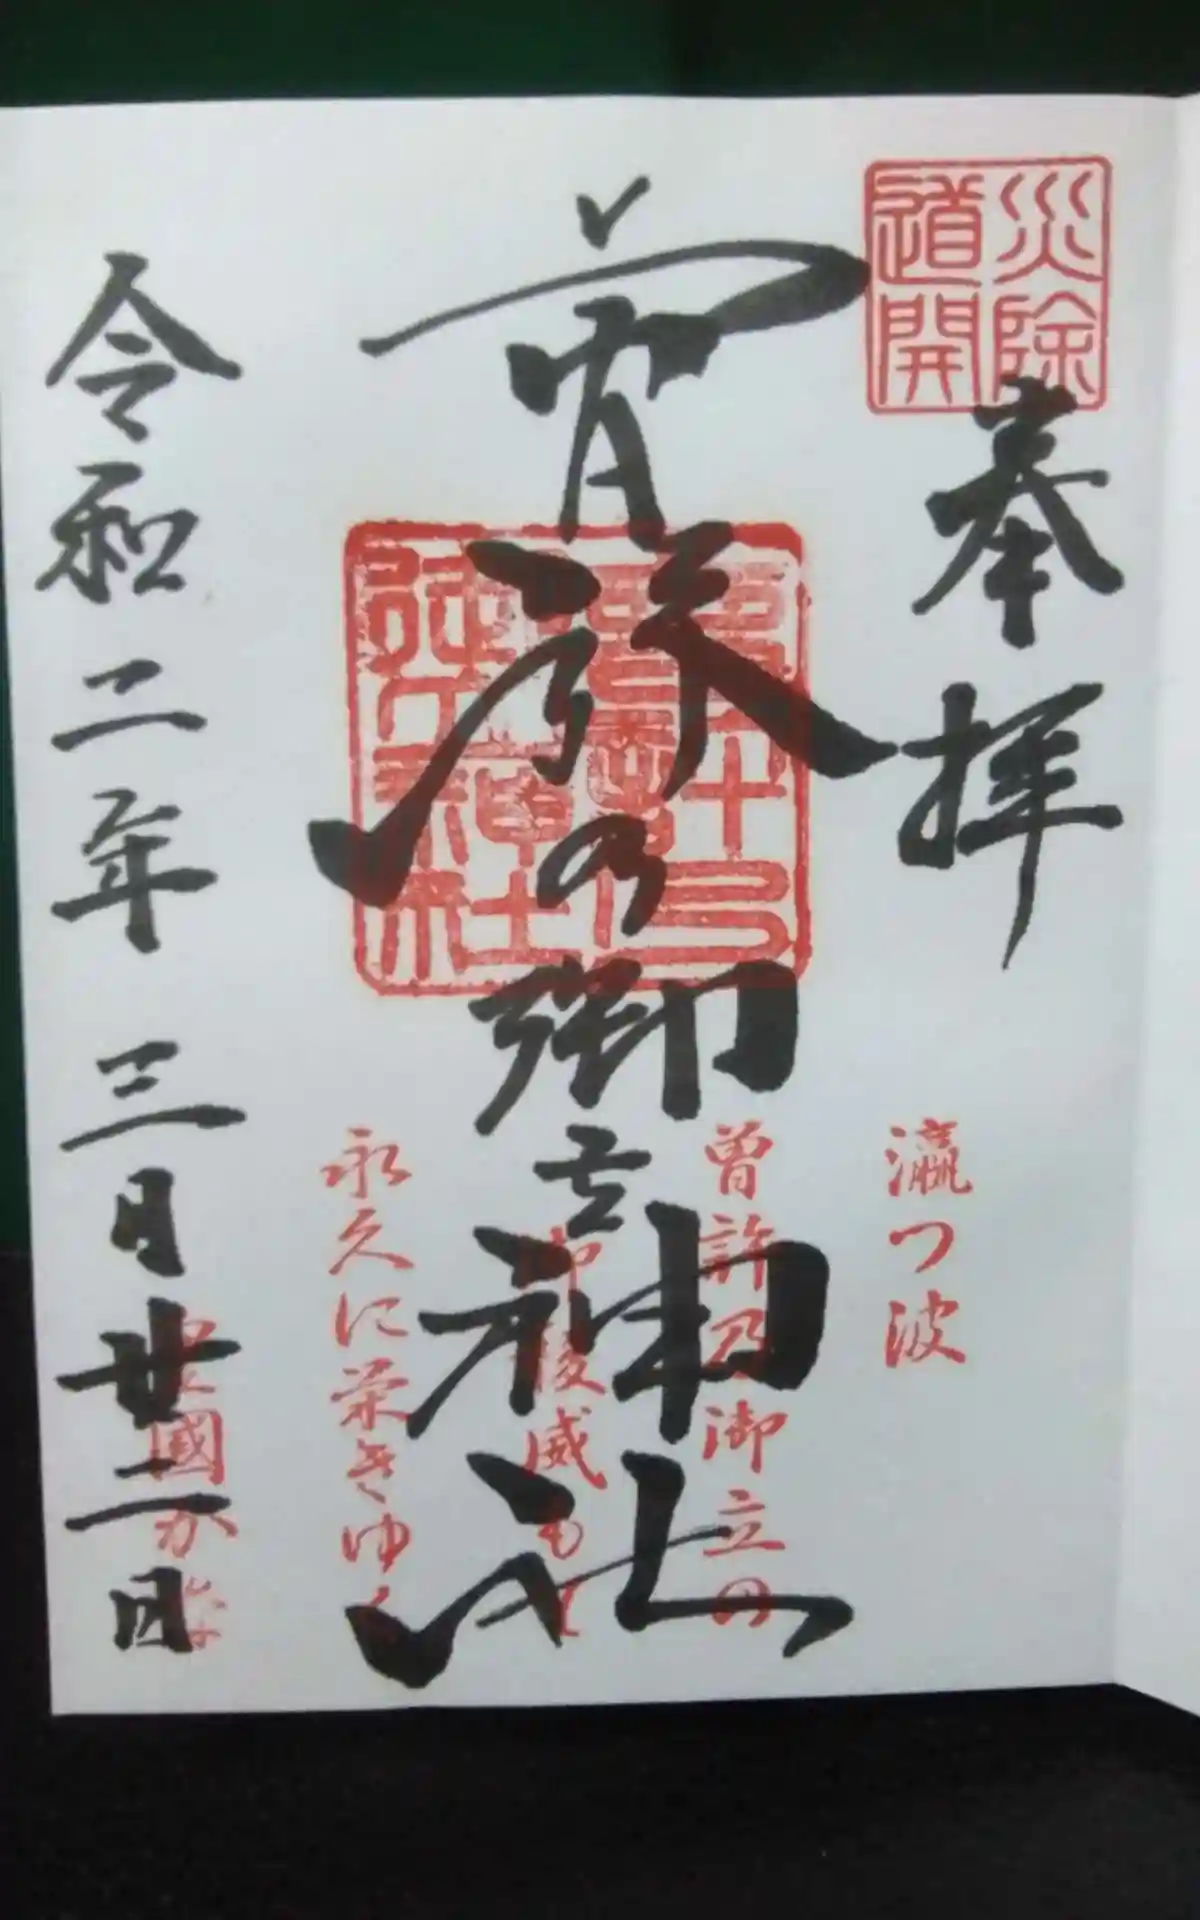 災除
道開
奉拝
曽許乃御立神社
令和二年三月廿二日
瀛つ波
曽許乃御立の
稜威もて
永久に栄きゆく
國かな